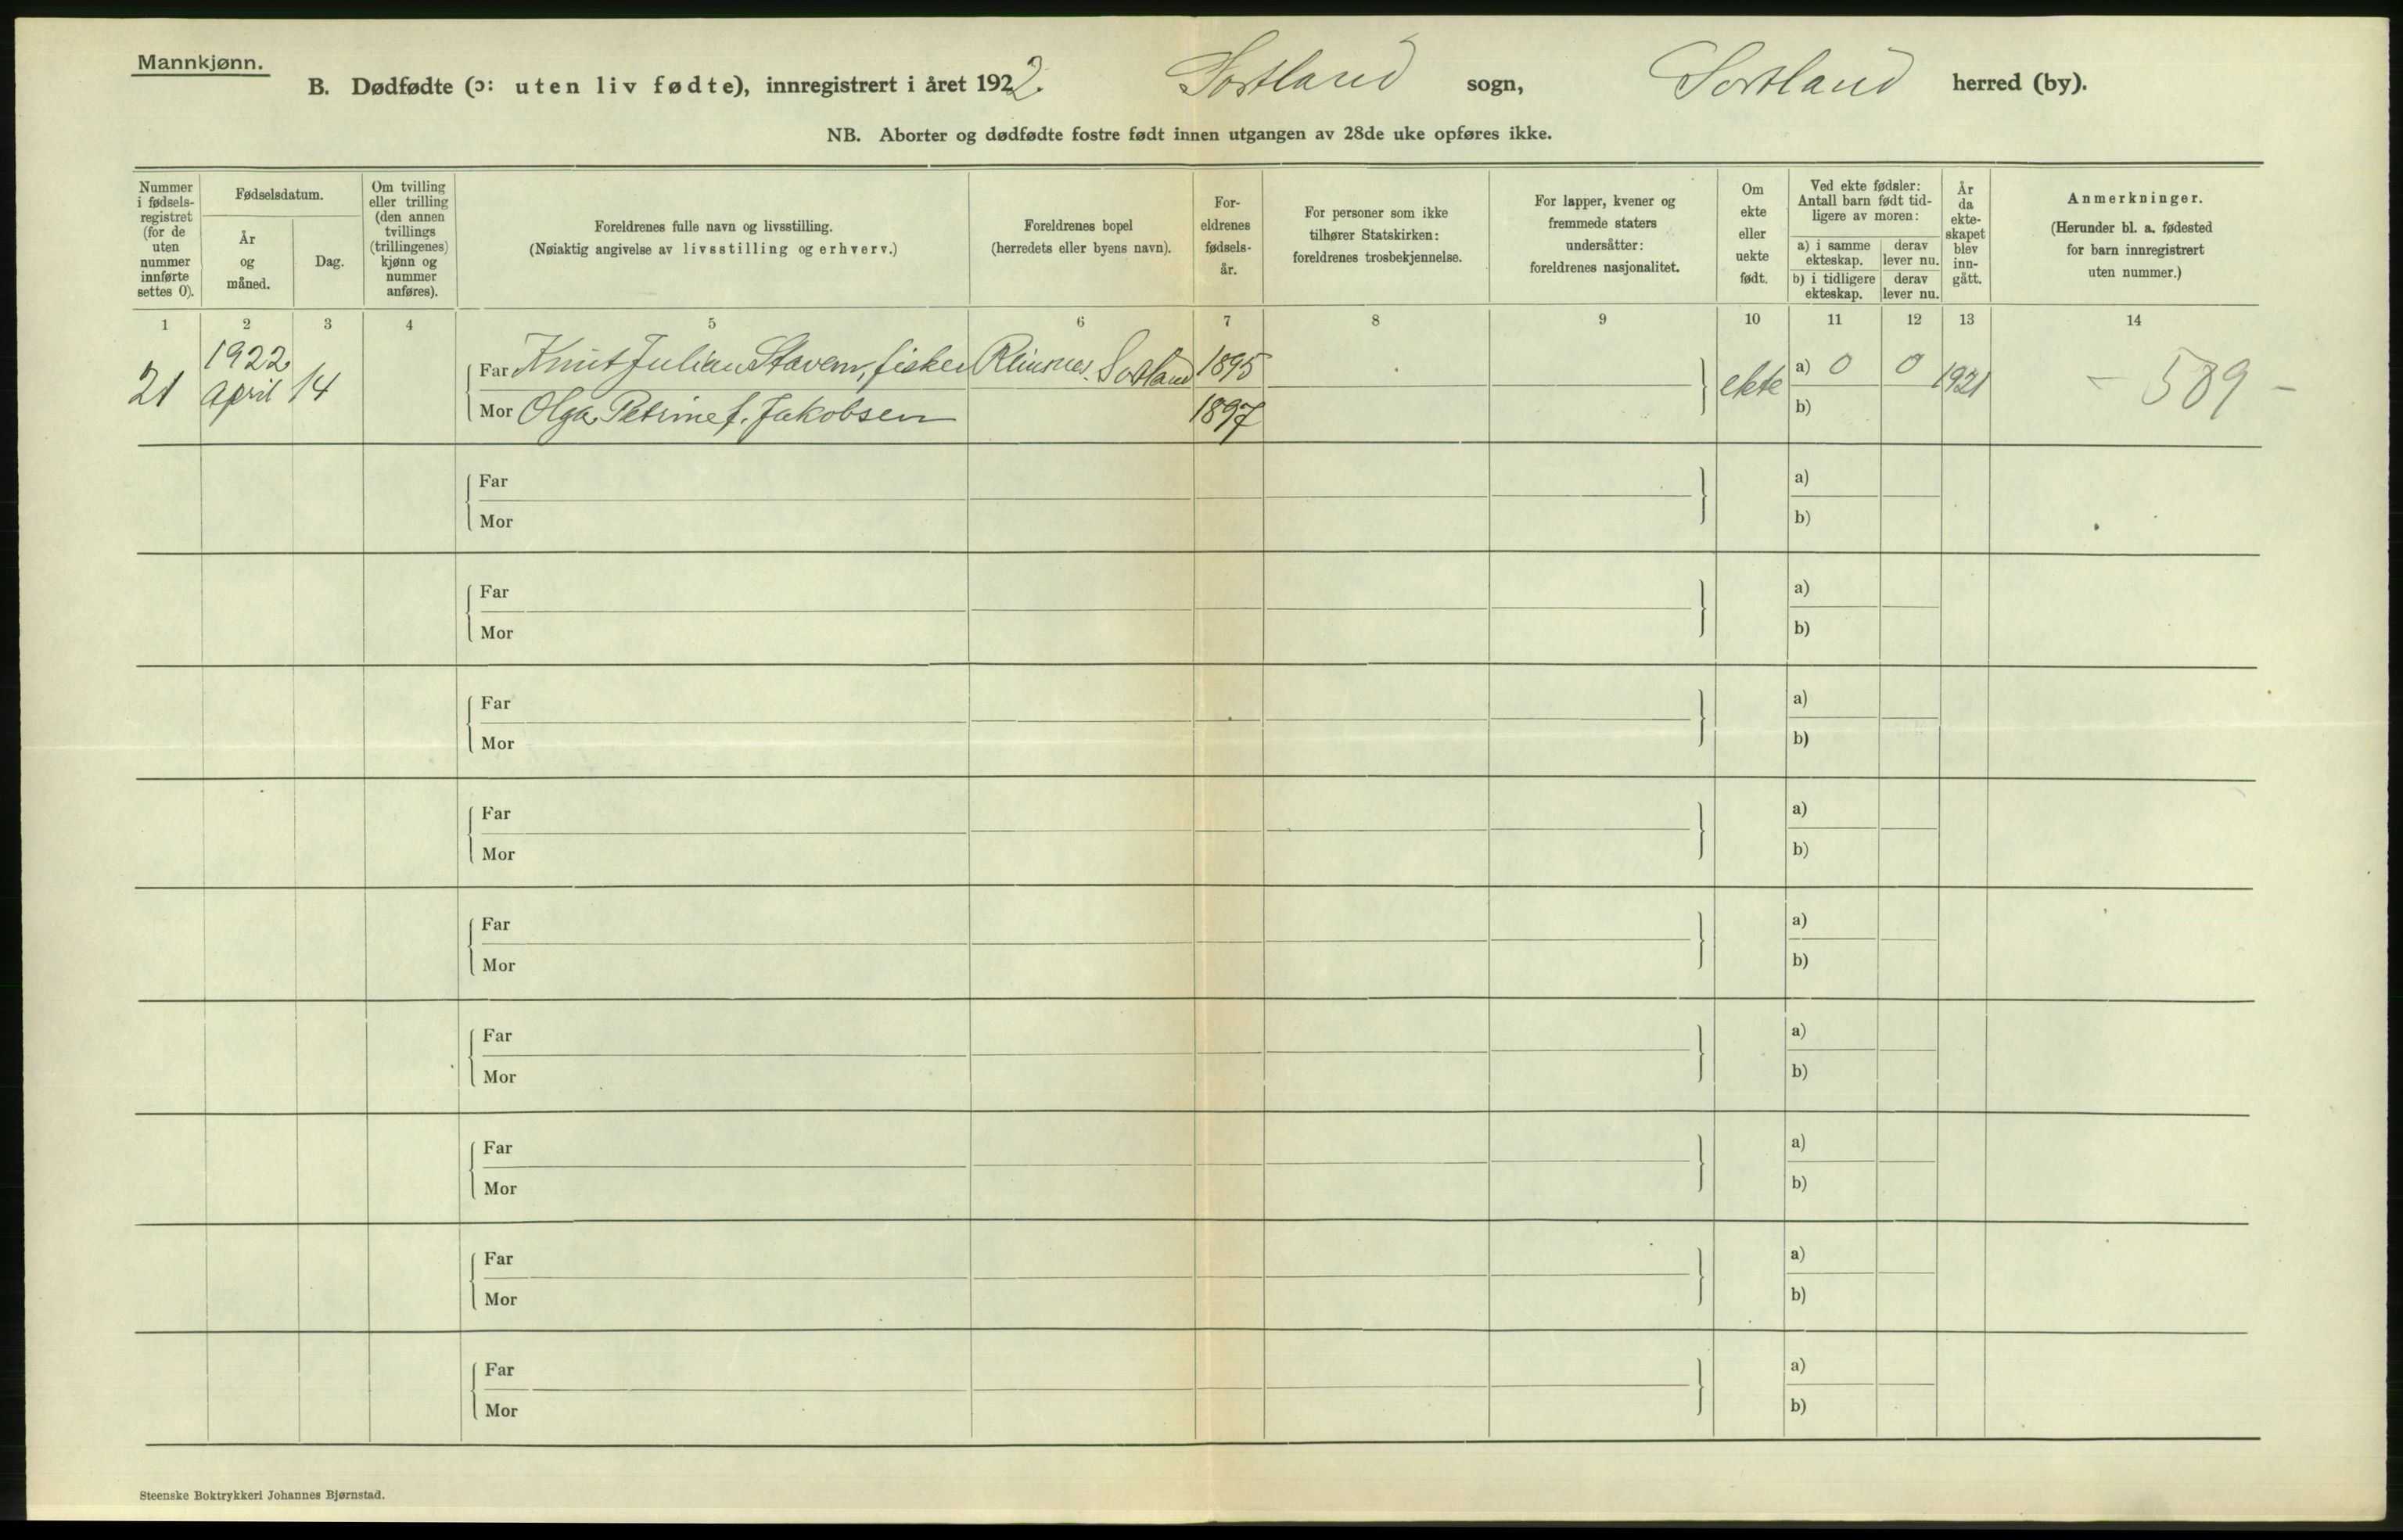 Mannkjønn.
B. Dødfødte (ɔ: uten liv fødte), innregistrert i året 1922. Sortland sogn, Sortland herred (by).
NB. Aborter og dødfødte fostre født innen utgangen av 28de uke opføres ikke.
Nummer i fødselsregistret (for de uten nummer innførte settes 0).
Fødselsdatum.
År og måned.
Dag.
Om tvilling eller trilling (den annen tvillings (trillingenes) kjønn og nummer anføres).
Foreldrenes fulle navn og livsstilling.
(Nøiaktig angivelse av livsstilling og erhverv.)
Foreldrenes bopel
(herredets eller byens navn).
Foreldrenes fødselsår.
For personer som ikke tilhører Statskirken: foreldrenes trosbekjennelse.
For lapper, kvener og fremmede staters undersåtter: foreldrenes nasjonalitet.
Om ekte eller uekte født.
Ved ekte fødsler: Antall barn født tidligere av moren:
a) i samme ekteskap.
derav lever nu.
b) i tidligere ekteskap.
derav lever nu.
År da ekteskapet blev inngått.
Anmerkninger.
(Herunder bl. a. fødested for barn innregistrert uten nummer.)
1 2 3 4 5 6 7 8 9 10 11 12 13 14
21 1922 april 14 Far Knut Julian Stavem, fisker Sortland 1895 ekte a) 0 0 1921 - 589 -
Mor Olga Petrine f. Jakobsen 1897 b)
Far a)
Mor b)
Far a)
Mor b)
Far a)
Mor b)
Far a)
Mor b)
Far a)
Mor b)
Far a)
Mor b)
Far a)
Mor b)
Far a)
Mor b)
Far a)
Mor b)
Steenske Boktrykkeri Johannes Bjørnstad.